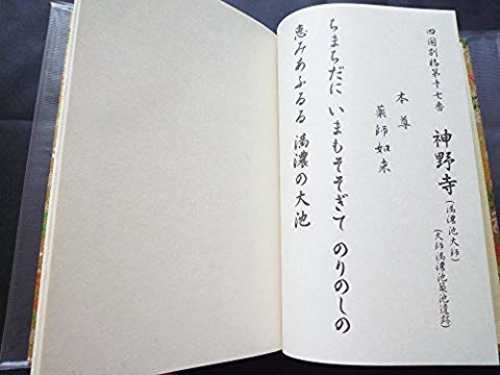 四国別格第十七番
神野寺(満濃池大師)
(大師満濃池築池遺跡)
本尊
薬師如来
ちまちだに いまもそそぎて のりのしの
恵みあふるる 満濃の大池